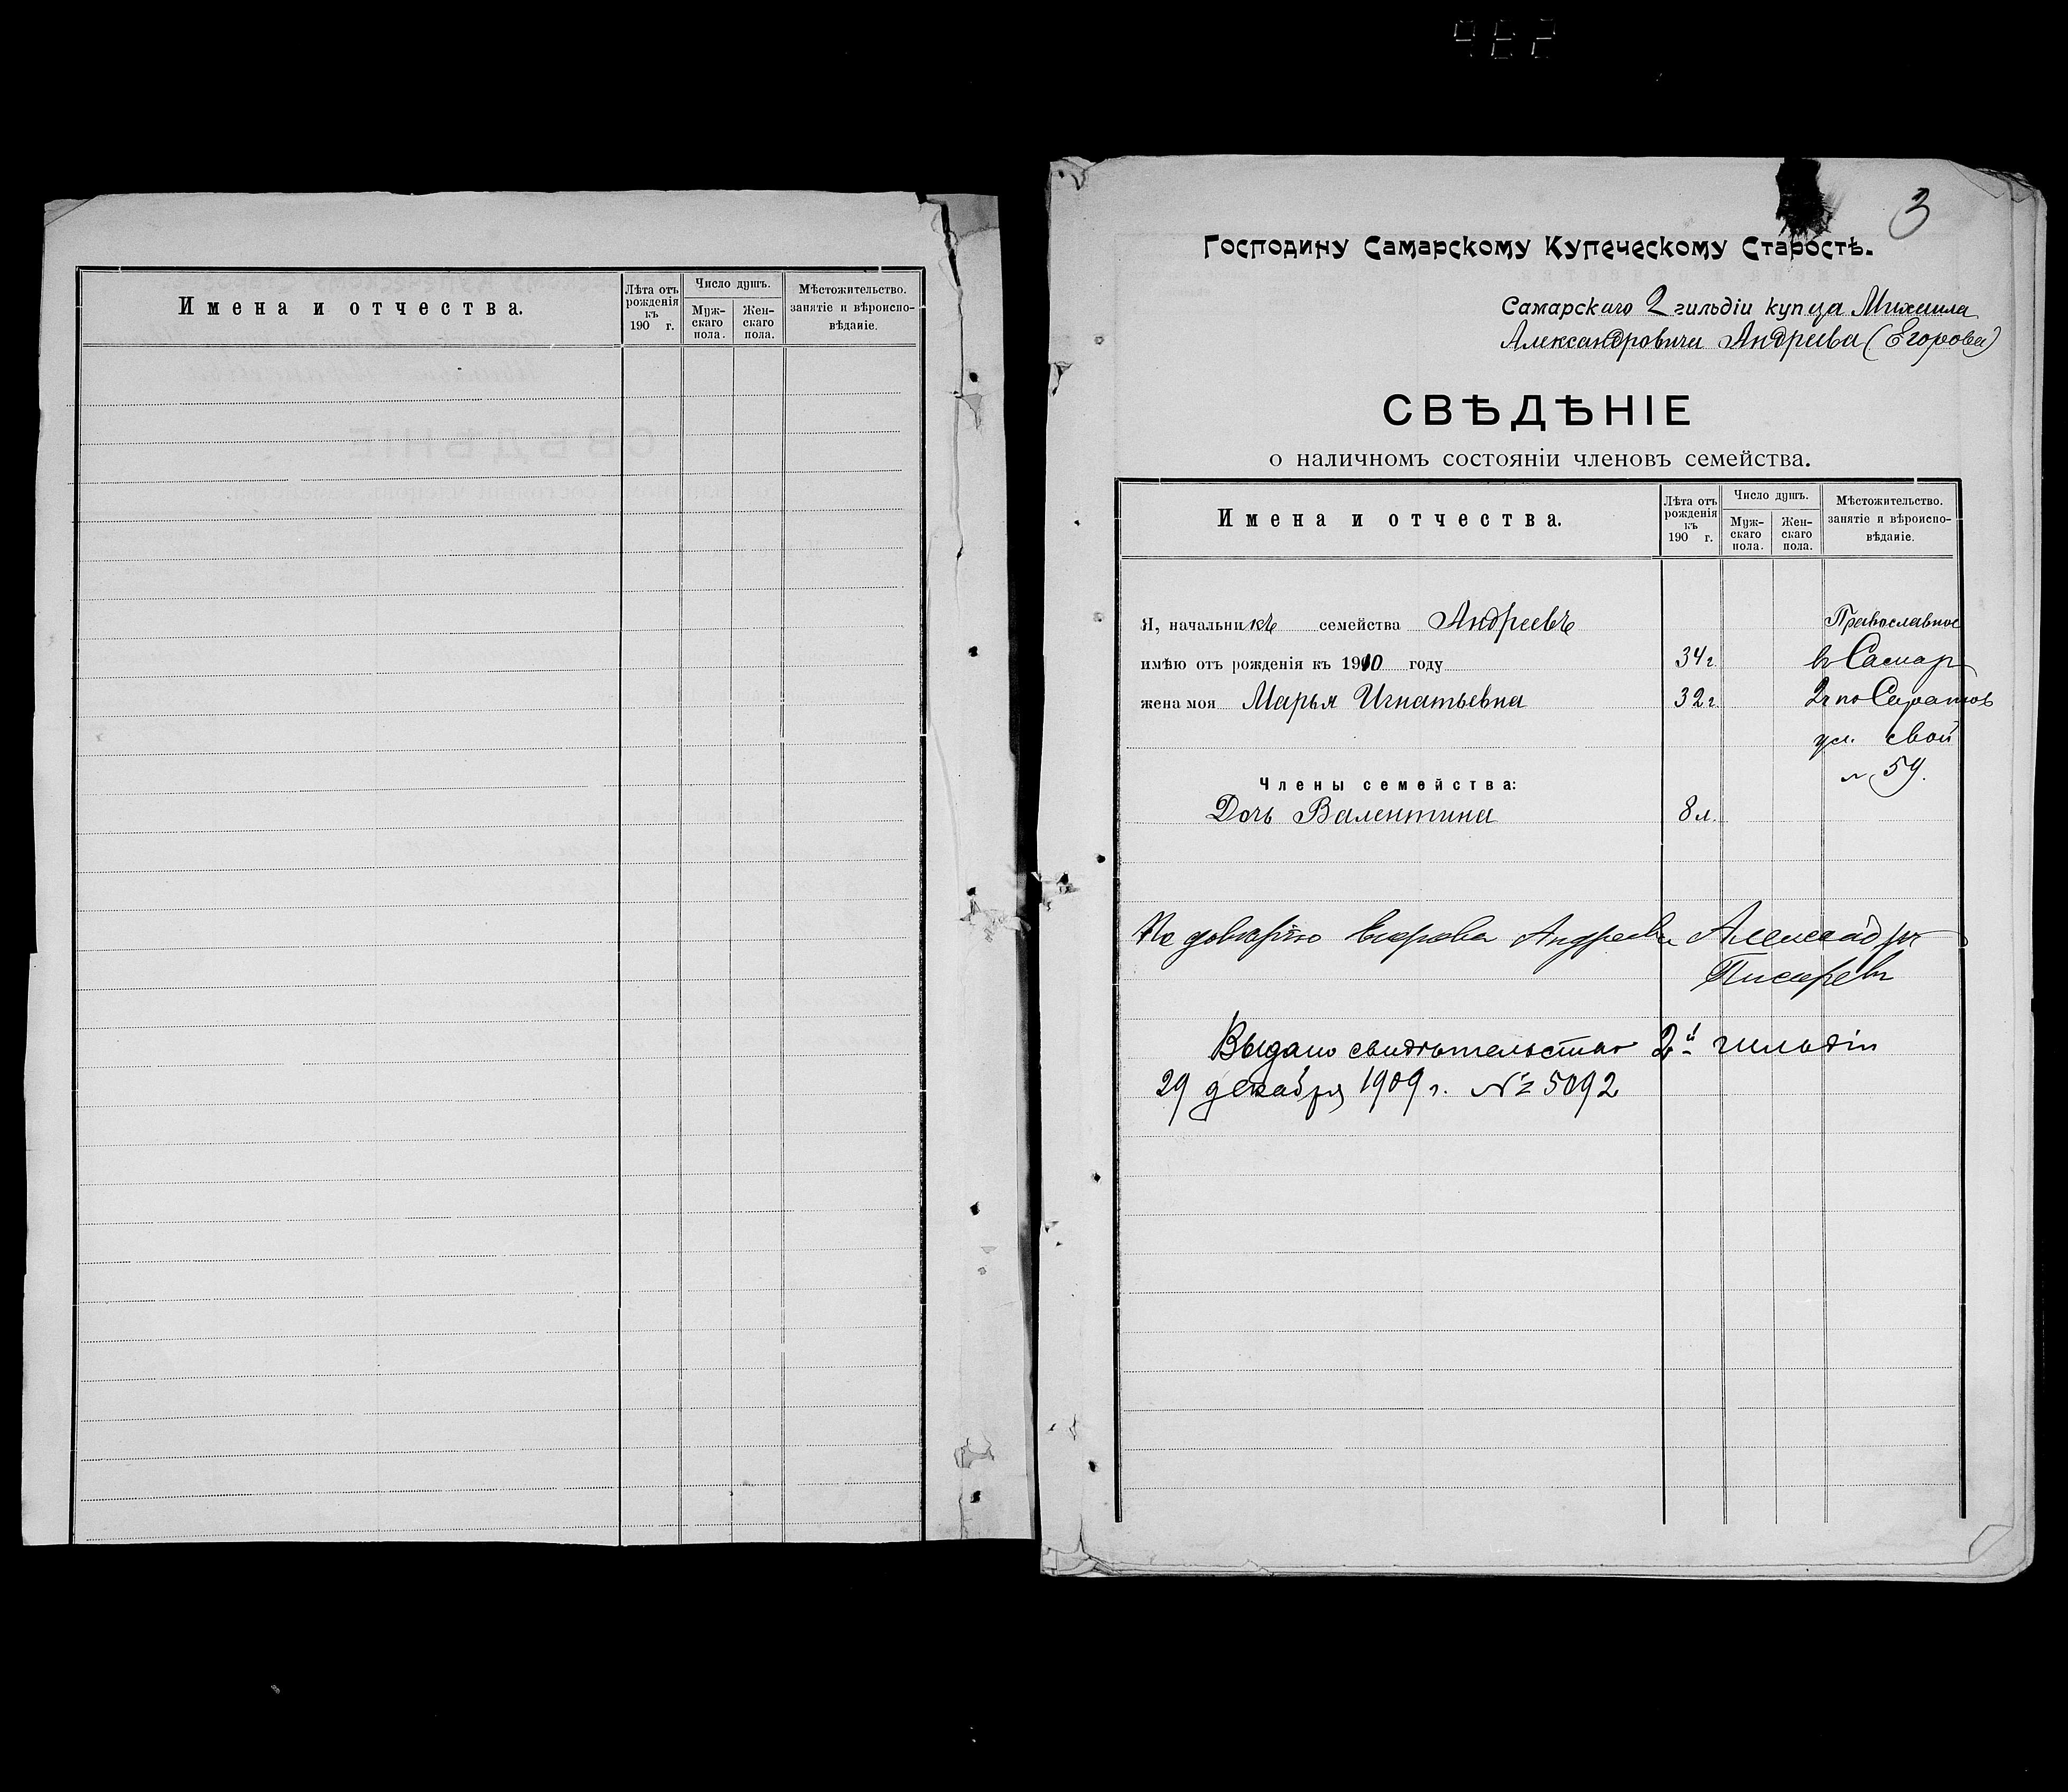 Имена и отчества.
Лѣта отъ рожденія къ 190 г.
Число душъ.
Муж-скаго пола.
Жен-скаго пола.
Мѣстожительство. занятіе и вѣроиспо-вѣданіе.
3
Господину Самарскому Купеческому Старостѣ.
Самарскаго 2 гильдіи купца Михаила
Александровича Андреева (Егорова)
СВѢДѢНІЕ
о наличномъ состояніи членовъ семейства.
Имена и отчества.
Лѣта отъ рожденія къ 190 г.
Число душъ.
Муж-скаго пола.
Жен-скаго пола.
Мѣстожительство. занятіе и вѣроиспо-вѣданіе.
Я, начальникъ семейства Андреевъ Православное
имѣю отъ рожденія къ 1910 году 34 г. въ Самар
жена моя Марья Игнатьевна 32 г. 2ч по Саратов
ул. свой
Члены семейства: № 59.
Дочь Валентина 8 л.
По довѣрію Егорова Андреева Александръ
Писаревъ
Выдано свидѣтельство 2й гильдіи
29 декабря 1909 г. № 5092